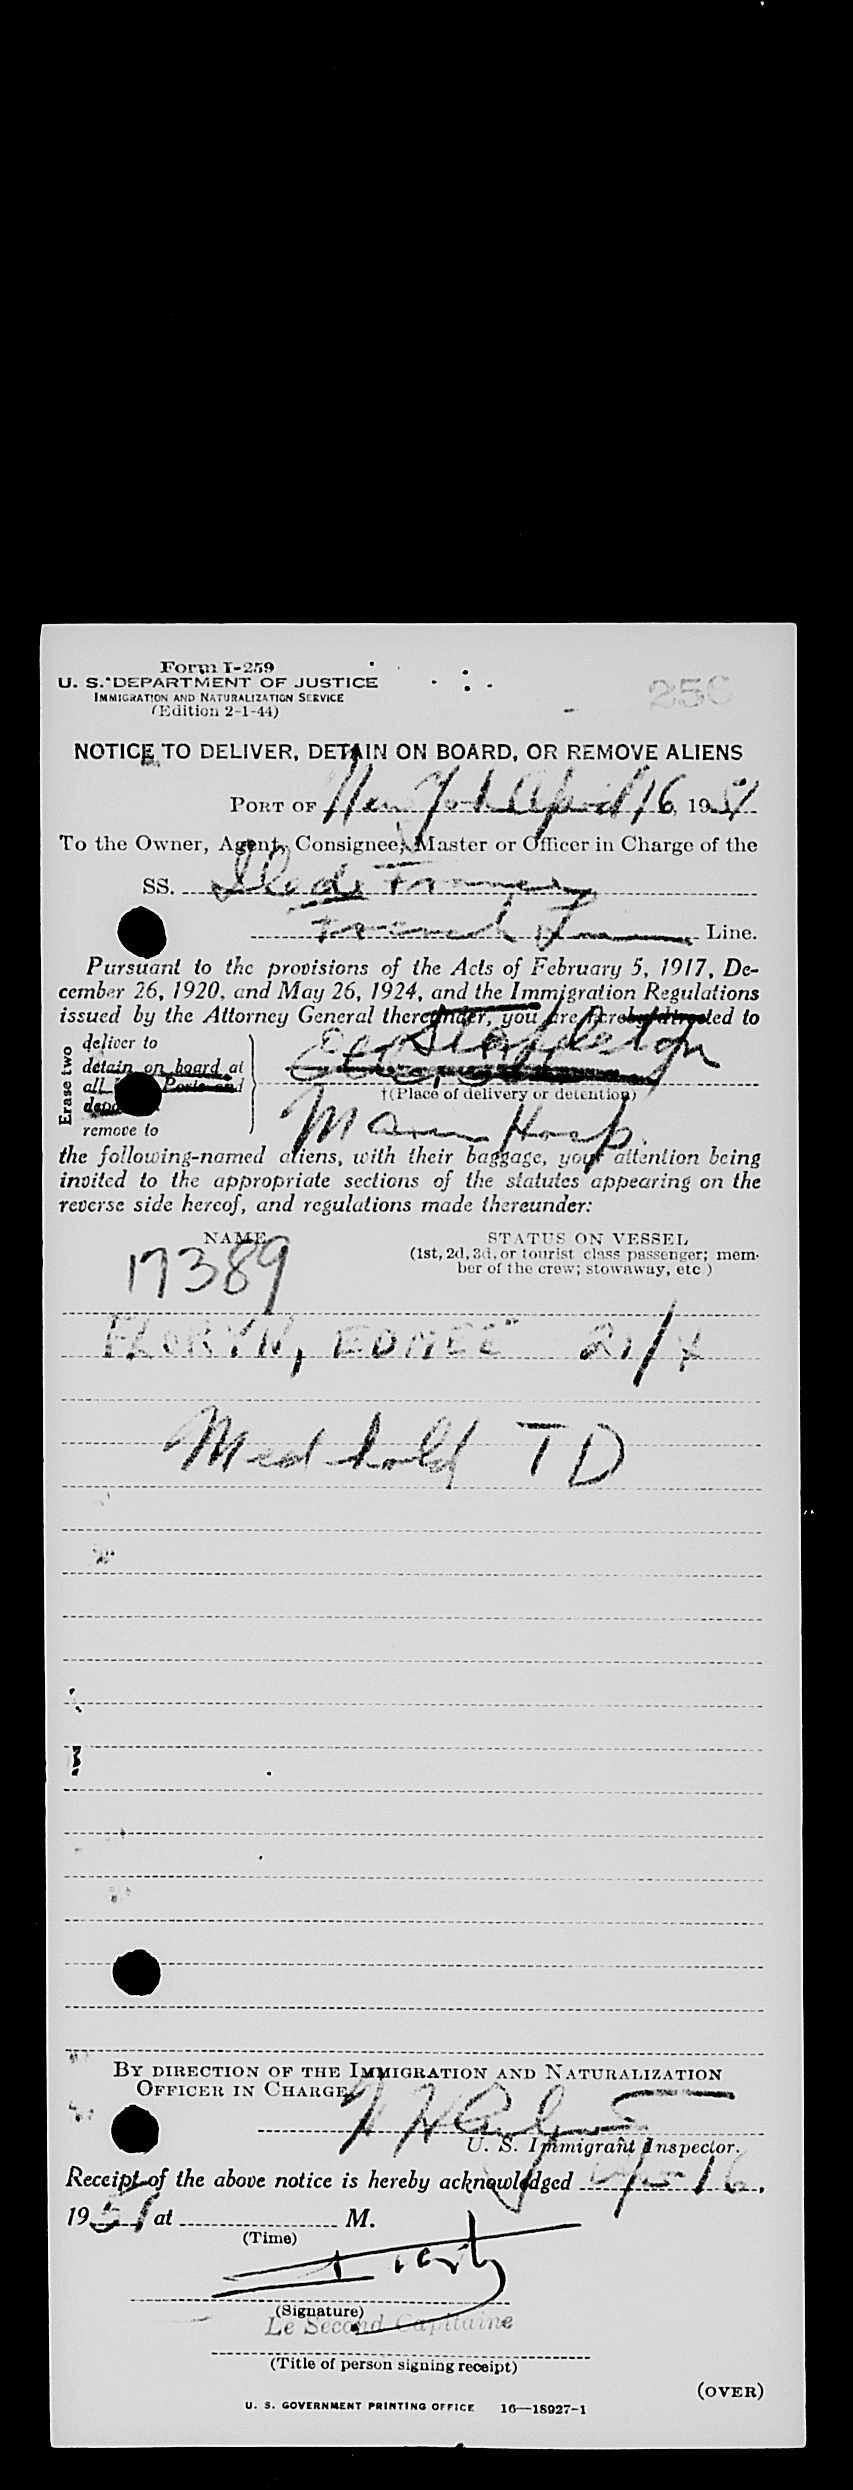 Form I-259
U. S. DEPARTMENT OF JUSTICE
IMMIGRATION AND NATURALIZATION SERVICE
(Edition 2-1-44)
256
NOTICE TO DELIVER, DETAIN ON BOARD, OR REMOVE ALIENS
PORT OF New York April 16, 1951
To the Owner, Agent, Consignee, Master or Officer in Charge of the
SS. Ile de France
French Line Line.
Pursuant to the provisions of the Acts of February 5, 1917, De-
cember 26, 1920, and May 26, 1924, and the Immigration Regulations
issued by the Attorney General thereunder, you are hereby directed to
Erase two
deliver to
detain on board at
all Ports and
remove to
Stapleton
†(Place of delivery or detention)
Marine Hosp.
the following-named aliens, with their baggage, your attention being
invited to the appropriate sections of the statutes appearing on the
reverse side hereof, and regulations made thereunder:
NAME STATUS ON VESSEL
(1st, 2d, 3d, or tourist class passenger; mem-
ber of the crew; stowaway, etc )
17389
FLORYN, EDMEE 21/4
Med hold TD
BY DIRECTION OF THE IMMIGRATION AND NATURALIZATION
OFFICER IN CHARGE
U. S. Immigrant Inspector.
Receipt of the above notice is hereby acknowledged Apr 16,
1951 at M.
(Time)
(Signature)
Le Second Capitaine
(Title of person signing receipt)
(OVER)
U. S. GOVERNMENT PRINTING OFFICE 16—18927-1